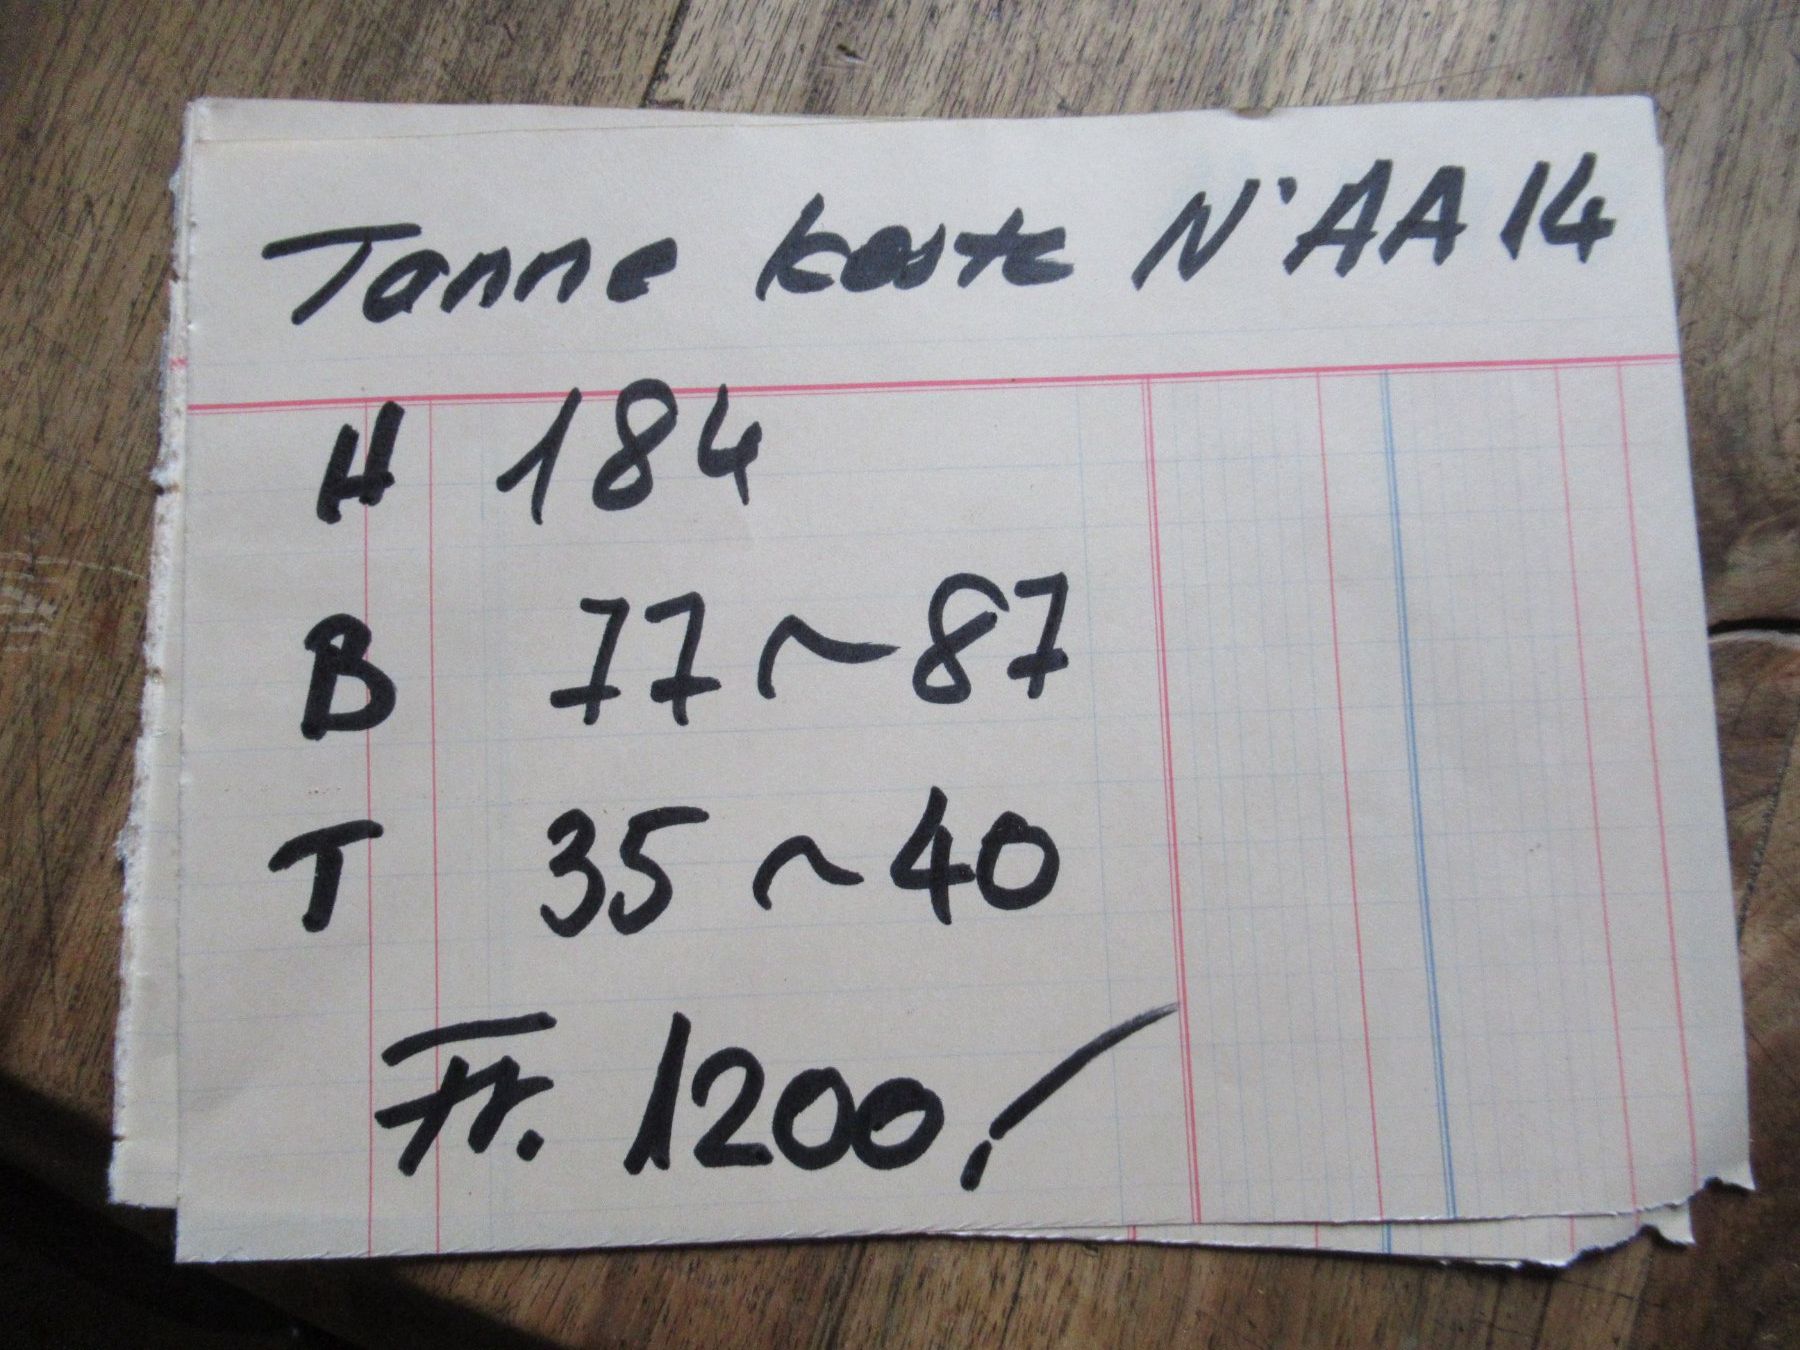 Tanne kaste N° AA 14
H 184
B 77 ~ 87
T 35 ~ 40
Fr. 1200,-